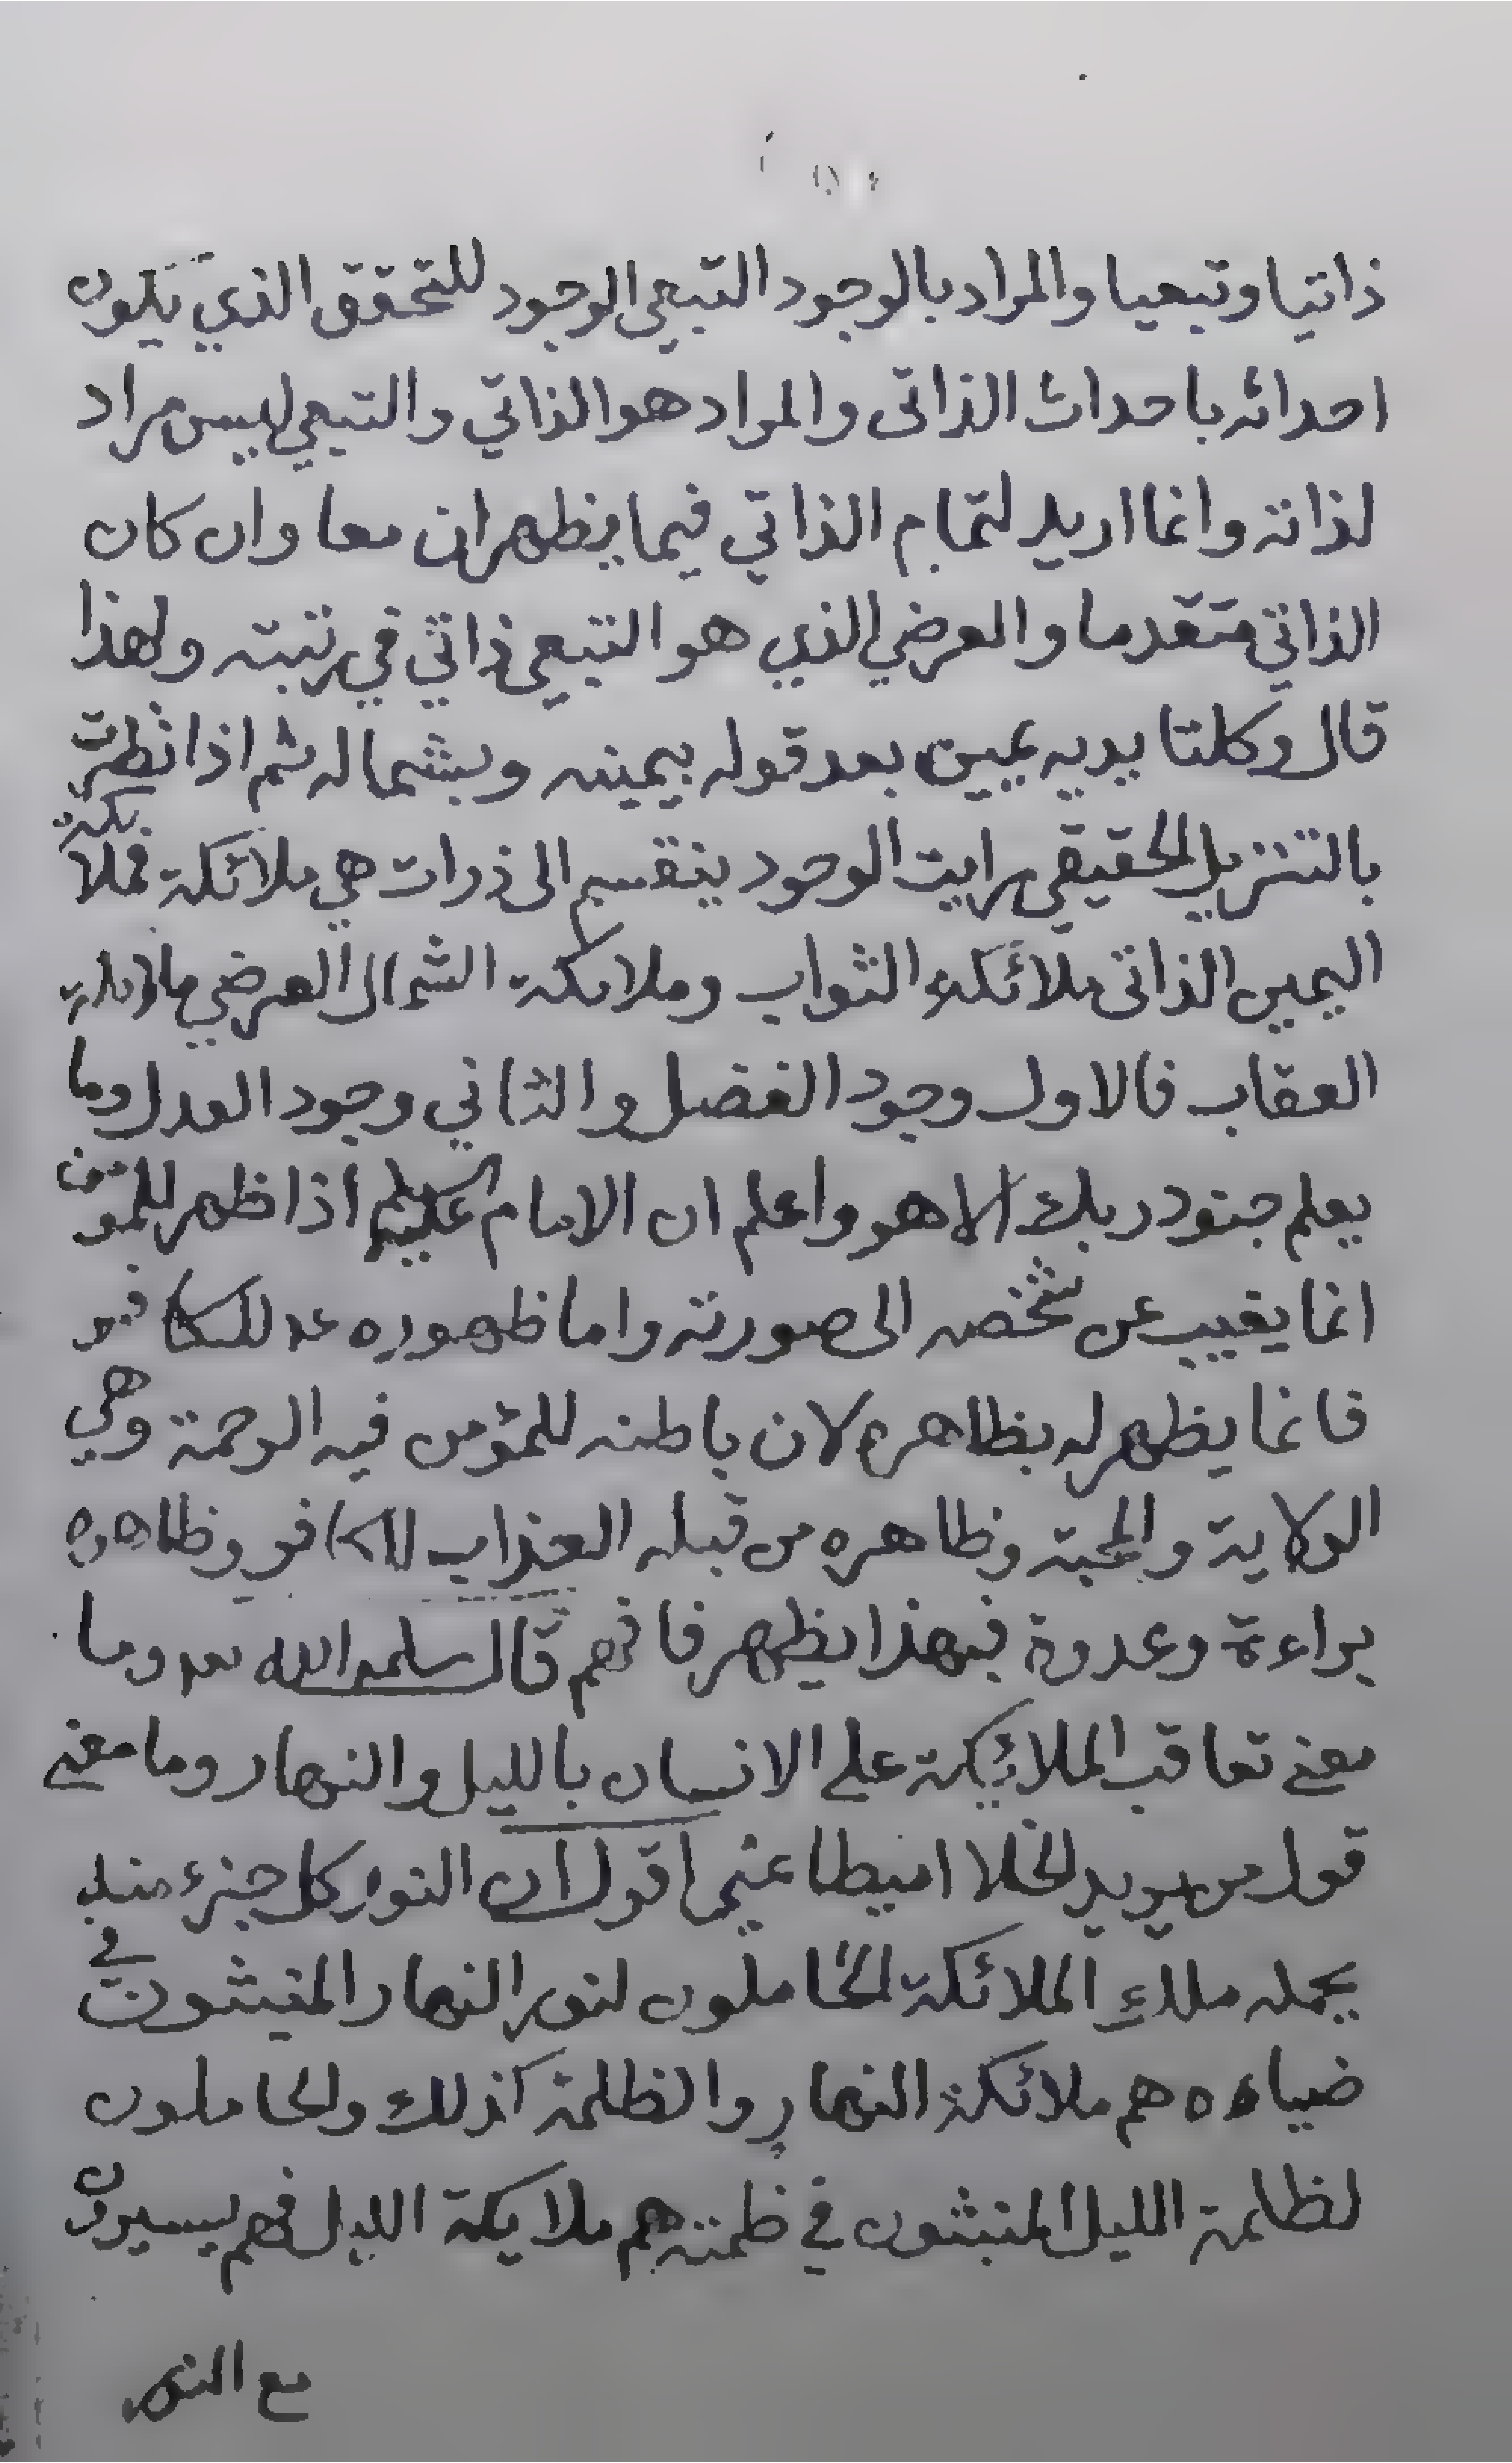 ذاتيا وتبعيا والمراد بالوجود التبعي الوجود للتحقق الذي يكون
احداثه باحداث الذاتى والمراد هو الذاتي والتبعي ليس مراد
لذاته وانما اريد لتمام الذاتي فيما يظهران معا وان كان
الذاتي متقدما والعرضي الذي هو التبعي ذاتي في رتبته ولهذا
قال وكلتا يديه يمين بعد قوله بيمينه وبشماله ثم اذا نظرت
بالتنزيل الحقيقي رايت الوجود ينقسم الى ذرات هي ملائكة فملائكة
اليمين الذاتى ملائكة الثواب وملائكة الشمال العرضي ملائكة
العقاب فالاول وجود الفضل والثاني وجود العدل وما
يعلم جنود ربك الا هو واعلم ان الامام اذا ظهر للمؤمن
انما يغيب عن شخصه الى صورته واما ظهوره للكافر
فانما يظهر له بظاهره لان باطنه للمؤمن فيه الرحمة وهي
الولاية والمحبة وظاهره من قبله العذاب للكافر وظاهره
براءة وعدوة فبهذا يظهر فافهم قال سلمه الله وما
معنى تعاقب الملائكة على الانسان بالليل والنهار وما معنى
قول من يريد الخلا اميطا عني اقول ان النور كل جزء منه
يحمله ملك الملائكة الحاملون لنور النهار المنبثون في
ضياءه هم ملائكة النهار والظلمة كذلك والحاملون
لظلمة الليل المنبثون في ظلمته هم ملايكة الليل فهم يسيرون
مع النور